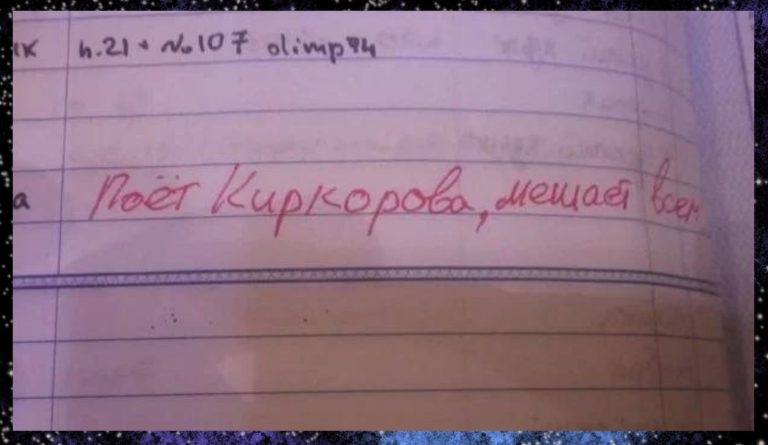 п.21 + №107 olimp 94
Поёт Киркорова, мешает всем